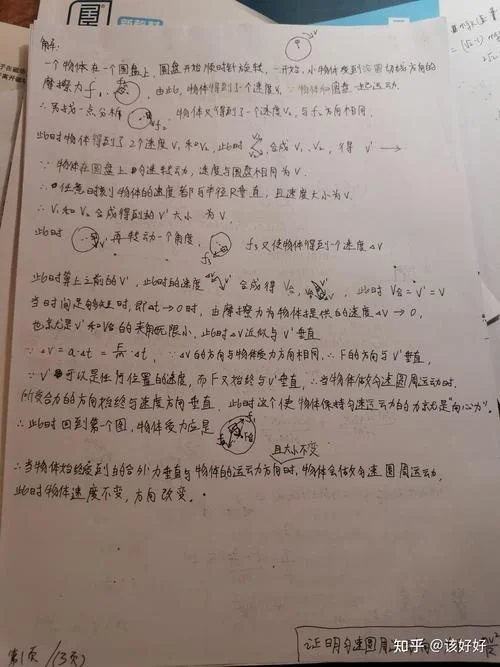 解:
一个物体在一个圆盘上,圆盘开始顺时针旋转,一开始,小物体受到沿圆切线方向的
摩擦力f₁, 由此,物体得到了一个速度V₁ ∵物体和圆盘一起运动.
∴另找一点分析 f₂, 物体又得到了一个速度V₂,与f₂方向相同.
此时物体得到了2个速度V₁和V₂,此时 合成V₁,V₂,得 V' →
∵物体在圆盘上匀速转动,速度与圆盘相同为V.
∴任意时刻物体的速度都与半径R垂直,且速度大小为V.
∴V₁和V₂合成得到的V'大小为V.
此时 再转动一个角度, f₃ f₃又使物体得到一个速度ΔV
此时算上之前的V',此时的速度 合成得V合, 此时V合=V'=V
当时间足够短时,即Δt→0时,由摩擦力为物体提供的速度ΔV→0,
也就是V'和V合的夹角无限小,此时ΔV近似与V'垂直
∵ΔV=a·Δt=F/m·Δt, ∵ΔV的方向与物体受力方向相同,∴F的方向与V'垂直,
∵V'可以是任何位置的速度,而F又始终与V'垂直,∴当物体做匀速圆周运动时,
所受合力的方向始终与速度方向垂直.此时这个使物体保持匀速运动的力就是"向心力".
∴此时回到第一个图,物体受力应是
且大小不变
∴当物体始终受到的合外力垂直与物体的运动方向时,物体会做匀速圆周运动,
此时物体速度不变,方向改变.
第1页/(3页)
证明匀速圆周
知乎 @该好好